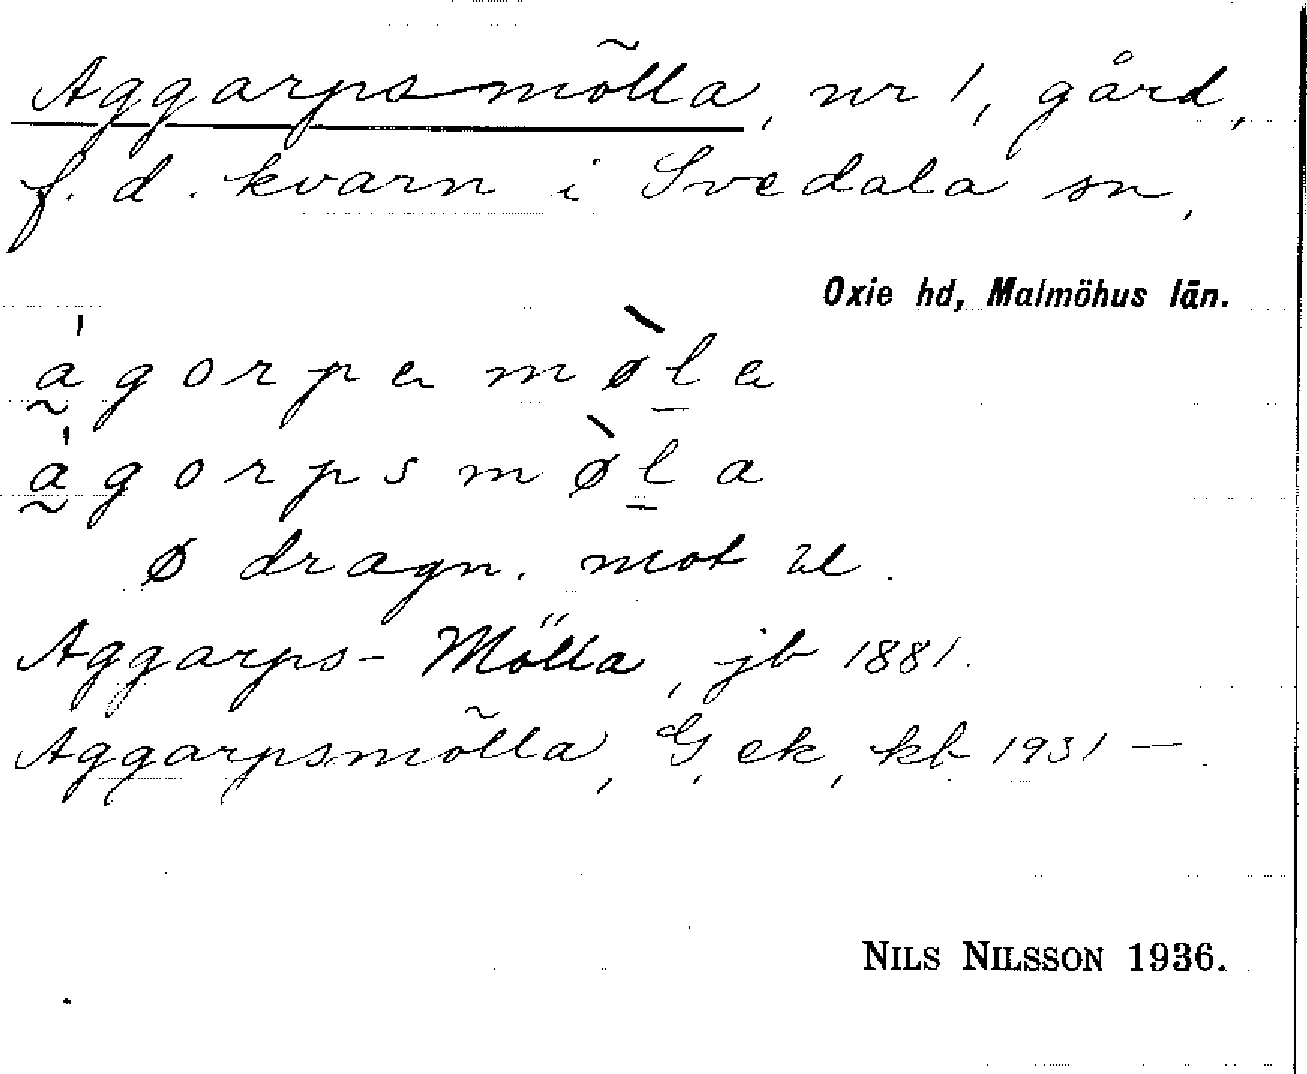 Aggarpsmölla, nr 1, gård,
f.d. kvarn i Svedala sn,
Oxie hd, Malmöhus län.
ágorpa mø̀la
ágorps mø̀la
ø dragn. mot
Aggarps-Mölla, jb 1881.
Aggarpsmölla, G, ek, kb 1931 —
NILS NILSSON 1936.